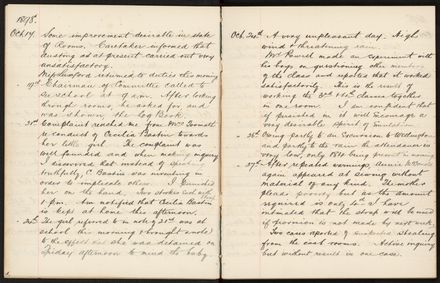 1898.
Oct 14. Some improvement desirable in state
of Rooms. Caretaker informed that
dusting as at present carried out very
unsatisfactory.
returned to duties this morning
17th Chairman of Committee called to
see school at 9 a.m. After looking
through rooms, he asked for and
was shewn the Log Book.
21st Complaint reached me from Mrs
re conduct of Cecilia Bastin towards
her little girl. The complaint was
well founded and when making inquiry
I discovered that instead of speaking
truthfully, C. Bastin was inventing in
order to implicate others. I punished
her on the hand, two strokes and until
1 p.m. Am notified that Cecilia Bastin
is kept at home this afternoon.
24th The girl referred to in note of 21st was at
school this morning & brought a note
to the effect that she was detained on
Friday afternoon to mind the baby.
Oct 24th A very unpleasant day. High
wind & threatening rain.
Mr Powell made an experiment with
his boys in questioning other members
of the class and reports that it worked
satisfactorily. This is the result of
working the 3rd & 4th classes together
in one room. I am confident that
if persisted in it will encourage a
very desirable spirit of
26th Owing partly to an Excursion to Wellington
and partly to the rain the attendance is
very low, only 186 being present in morning
27th After repeated warnings
again appeared at sewing without
material of any kind. The mother
pleads poverty, but as the amount
required is only I have
intimated that the strap will be used
if provision is not made by next week.
Two cases reported of suspected stealing
from the east rooms. Active inquiry
but without result in one case.